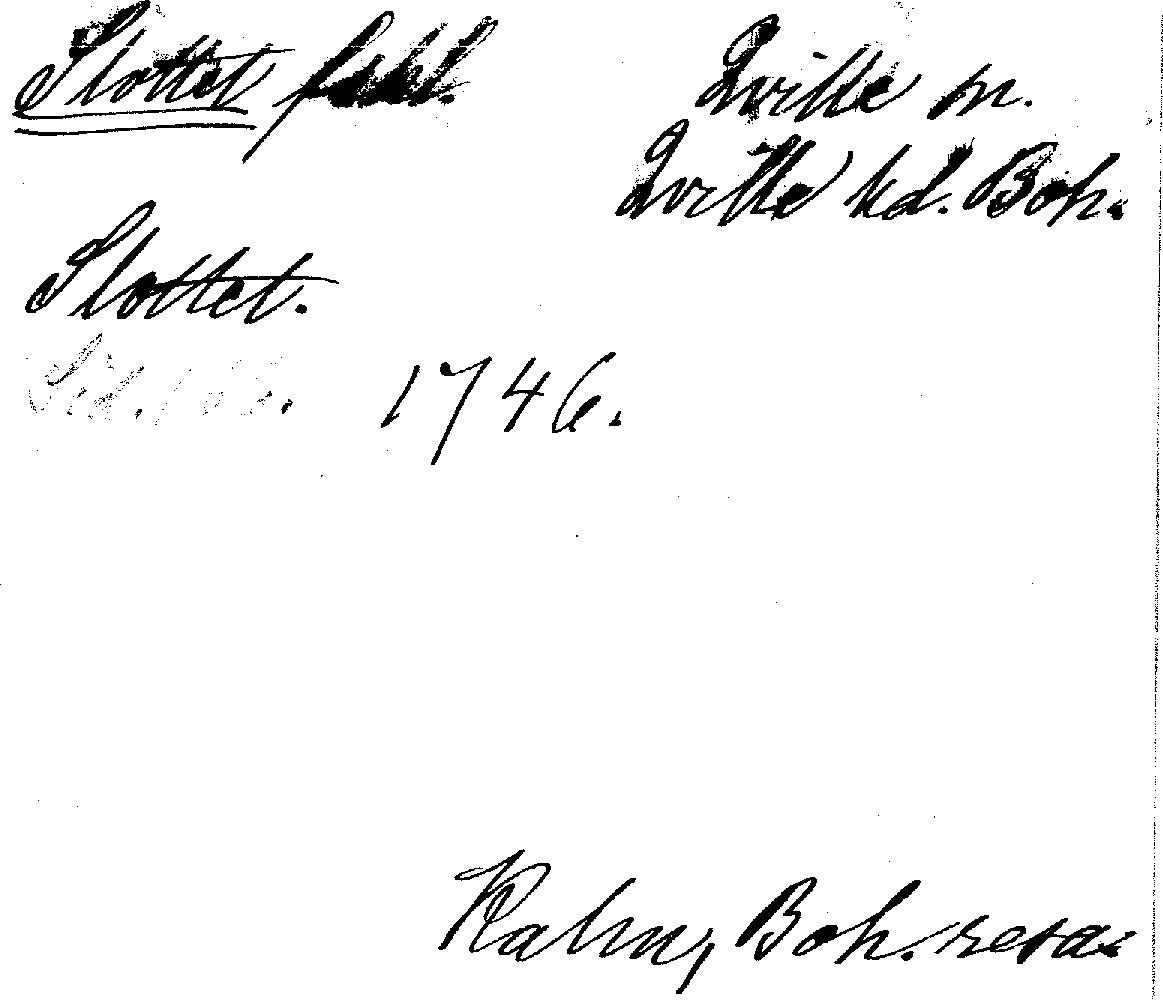 Slottet
Qville sn.
Qville hd. Boh.
Slottet.
Sid. 1746.
Kalm, Boh. resa.